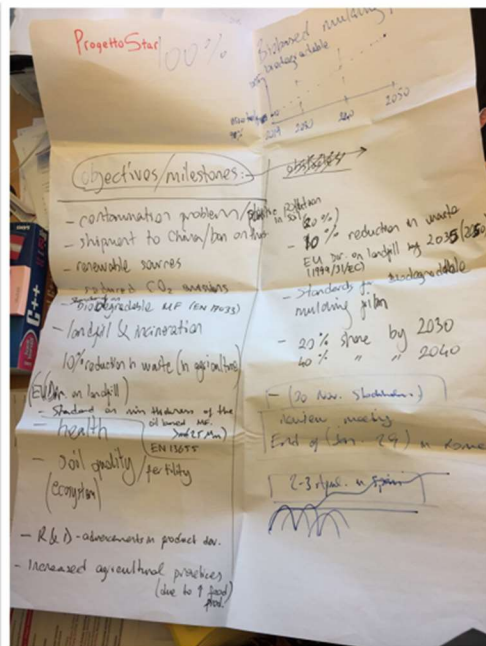 ProgettoStar
100%
Biobased mulching
biodegradable
2030
2050
objectives/milestones:
- contamination problem/plastic pollution
in soil
- shipment to China/ban on that
- renewable sources
- reduced CO2 emissions
- biodegradable MF (EN 17033)
- landfill & incineration
10% reduction in waste (in agriculture)
(EU Dir. on landfill)
- Standard on min thickness of the
oil based MF.
EN 13655
- health
- soil quality/fertility
(ecosystem)
- R & D - advancements in product dev.
- Increased agricultural practices
(due to ↑ food
prod.
- 10% reduction in waste
EU Dir. on landfill by 2035
(1999/31/EC)
- Standards for biodegradable
mulching film
- 20% share by 2030
40% " " 2040
- (20 Nov. Stockholm)
review meeting
End of (Jan. 29) in Rome
2-3 in Spain
C++